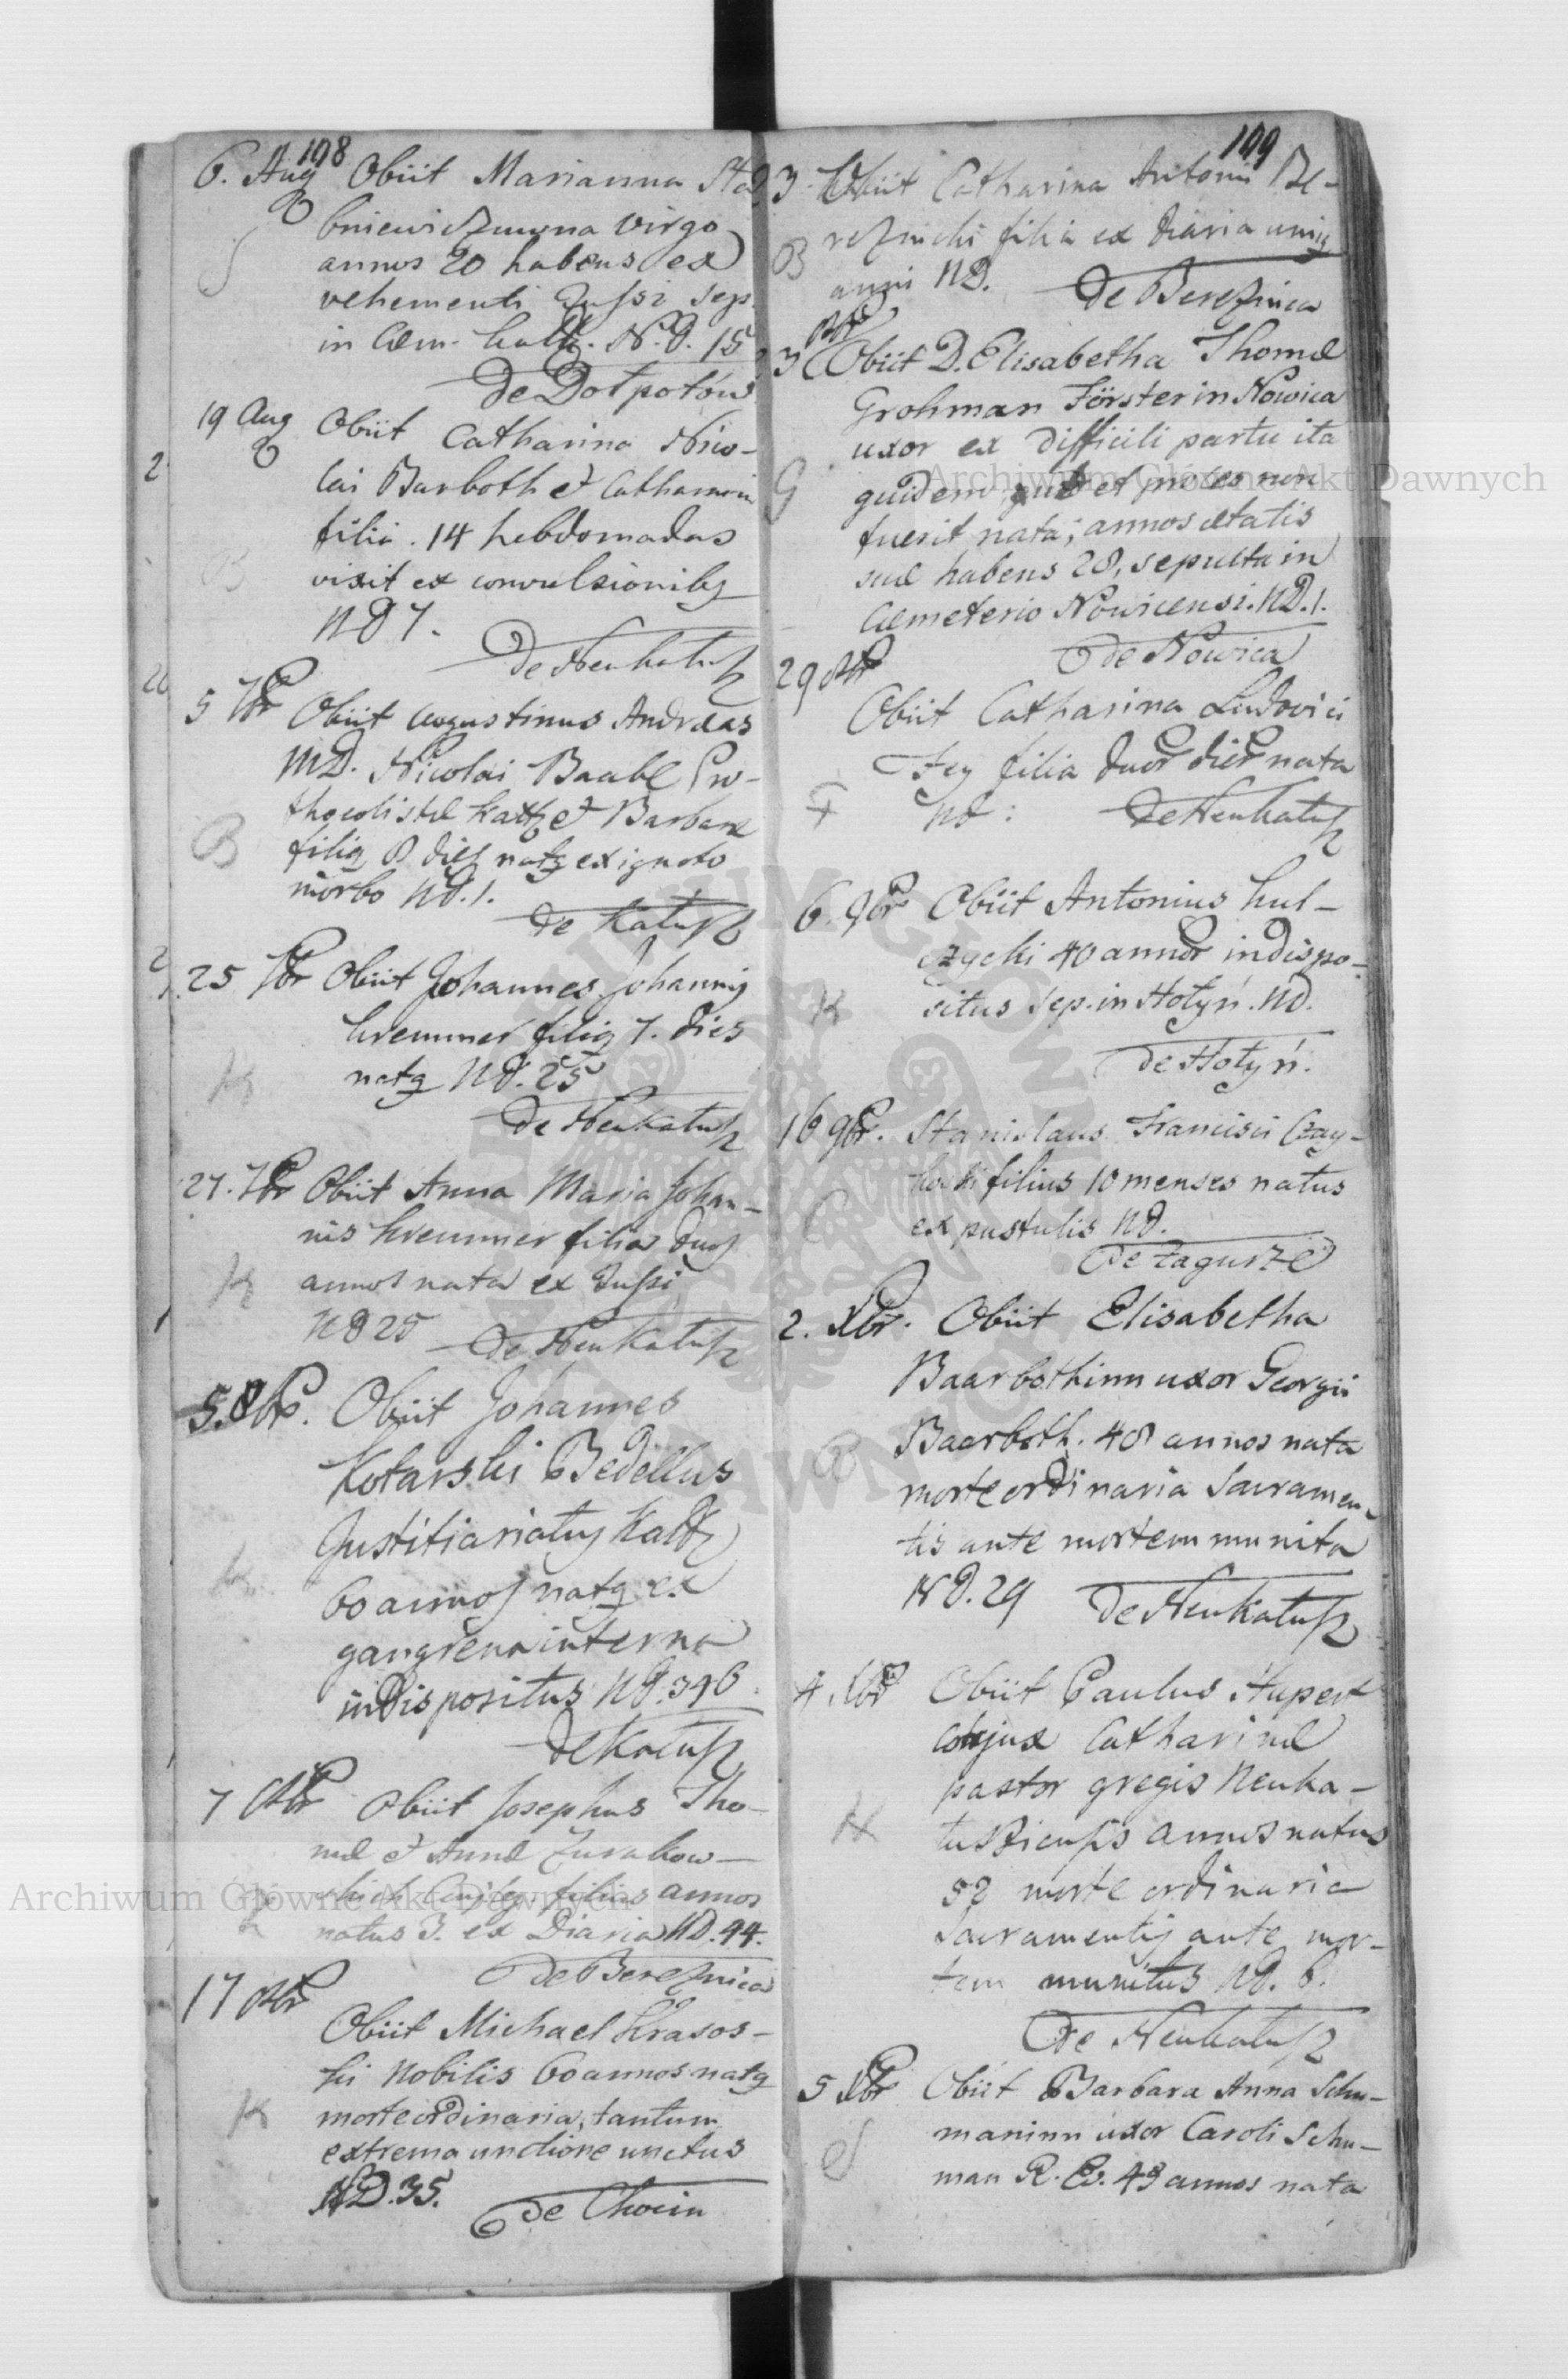 108
6. Aug Obiit Marianna Sta
bniewiczuwna virgo
S
annos 20 habens ex
vehementi Tussi sep.
in Cem. Kalh. N.D. 15
De Dołpotów
19 Aug Obiit Catharina Nico-
lai Barboth et Catharinæ
filia. 14 hebdomadas
B
vixit ex convulsionibq
ND 7.
De Neukałusz
5 7br Obiit Augustinus Andreas
MD. Nicolai Baabe
et Barbaræ
B
filiq 8 dies natq ex ignoto
morbo ND.1.
De Kałusz
25 7br Obiit Johannes Johannis
Kremmer filiq 7. dies
K
natq ND. 25
De Neukałusz
27. 7br Obiit Anna Maria Johan-
nis Kremmer filia duos
K
annos nata ex Tussi
ND 25 De Neukałusz
5. 8br. Obiit Johannes
Kotarski Bedellus
Justitiariatus Kal
K
60 annos natq ex
gangrena interna
indispositus ND. 396.
De Kałusz
7 8br Obiit Josephus Tho-
mæ et Annæ Zurakow-
skich Conjug. filius annos
natus 3. ex Diaria ND. 44.
De Bereznica
17 8br
Obiit Michael Krasos-
ki Nobilis 60 annos natq
K
morte ordinaria, tantum
extrema unctione unctus
ND. 35.
De Chocin
109
3. Obiit Catharina Antonii Be-
reznicki filia ex diaria uniq
B
anni ND. De Bereznica
3 8br Obiit D. Elisabetha Thomæ
Grohman Förster in Nowica
uxor ex difficili partu ita
G
quidem, quod et proles non
fuerit nata; annos ætatis
suæ habens 28, sepulta in
Cæmeterio Nowicensi. ND. 1.
De Nowica
29 8br
Obiit Catharina Ludovici
Fey filia duor dier nata
F
ND: De Neukałusz
6. 9br Obiit Antonius Kul-
czycki 40 annor indispo-
K
situs sep. in Hołyń. ND.
De Hołyń.
16 9br. Stanislaus Francisci Czay-
kowski filius 10 menses natus
C
ex pustulis ND.
De Zagurze
2. Xbr. Obiit Elisabetha
Baarbothinn uxor Georgii
B
Baarboth. 48 annos nata
morte ordinaria Sacramen-
tis ante mortem munita
ND. 29 De Neukałusz
4. Xbr Obiit Paulus Hupert
conjux Catharinæ
pastor gregis Neuka-
H
annos natus
52 morte ordinaria
Sacramentis ante mor-
tem munitus ND. 6.
De Neukałusz
5 Xbr Obiit Barbara Anna Schu-
maninn uxor Caroli Schu-
S
man R. C. 48 annos nata
Archiwum Główne Akt Dawnych
Archiwum Główne Akt Dawnych